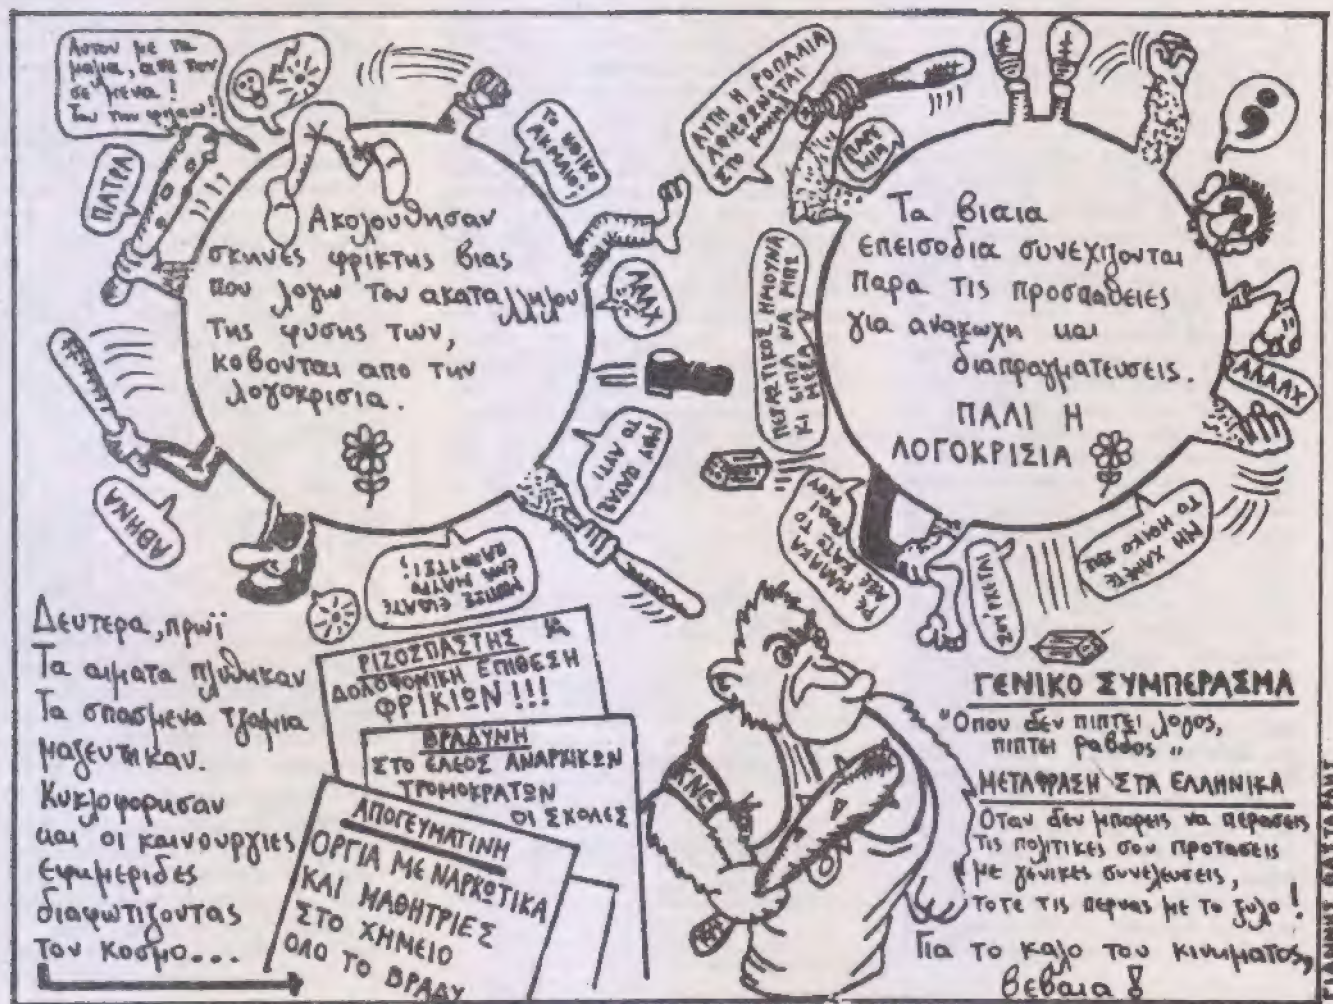 Αυτον με τα
μαλια, απε τον
σε μενα!
Του την φυλαω!
ΠΑΤΡΑ
ΑΘΗΝΑ
Ακολουθησαν
σκηνες φρικτης βιας
που λογω του ακαταλληλου
της φυσης των,
κοβονται απο την
λογοκρισια.
ΤΟ ΗΘΙΚΟ
ΑΚΜΑΙΟ!
ΑΛΑΧ
ΤΟ ΑΝΤΙ
ΑΥΤΗ Η ΡΟΠΑΛΙΑ
ΑΦΙΕΡΩΝΕΤΑΙ
ΣΤΟ ΚΟΜΜΑ!
ΠΕΡΑΣΤΙΚΟΣ ΗΜΟΥΝΑ
ΚΙ ΕΙΠΑ ΝΑ ΜΠΩ
ΜΕΣΑ
Τα βιαια
επεισοδια συνεχιζονται
παρα τις προσπαθειες
για ανακωχη και
διαπραγματευσεις.
ΠΑΛΙ Η
ΛΟΓΟΚΡΙΣΙΑ
;
ΑΛΑΑΧ
ΜΗ ΧΑΝΕΤΕ
ΤΟ ΗΘΙΚΟ ΣΑΣ
ΡΕ ΜΑΛΑΚΑ
ΑΣΕ ΚΑΤΩ ΤΟ
ΠΟΔΙ ΜΟΥ
ΜΗΠΩΣ ΕΙΔΑΤΕ
ΕΝΑ ΜΑΥΡΟ
Δευτερα, πρωϊ
Τα αιματα πλυθηκαν
Τα σπασμενα τζαμια
μαζευτηκαν.
Κυκλοφορησαν
και οι καινουργιες
εφημεριδες
διαφωτιζοντας
τον κοσμο...
ΡΙΖΟΣΠΑΣΤΗΣ
ΔΟΛΟΦΟΝΙΚΗ ΕΠΙΘΕΣΗ
ΦΡΙΚΙΩΝ!!!
ΒΡΑΔΥΝΗ
ΣΤΟ ΕΛΕΟΣ ΑΝΑΡΧΙΚΩΝ
ΤΡΟΜΟΚΡΑΤΩΝ
ΟΙ ΣΧΟΛΕΣ
ΑΠΟΓΕΥΜΑΤΙΝΗ
ΟΡΓΙΑ ΜΕ ΝΑΡΚΩΤΙΚΑ
ΚΑΙ ΜΑΘΗΤΡΙΕΣ
ΣΤΟ ΧΗΜΕΙΟ
ΟΛΟ ΤΟ ΒΡΑΔΥ
ΚΝΕ
ΓΕΝΙΚΟ ΣΥΜΠΕΡΑΣΜΑ
"Οπου δεν πιπτει λογος,
πιπτει ραβδος"
ΜΕΤΑΦΡΑΣΗ ΣΤΑ ΕΛΛΗΝΙΚΑ
Οταν δεν μπορεις να περασεις
Τις πολιτικες σου προτασεις
με γενικες συνελευσεις,
τοτε τις περνας με το ξυλο!
Για το καλο του κινηματος,
βεβαια!